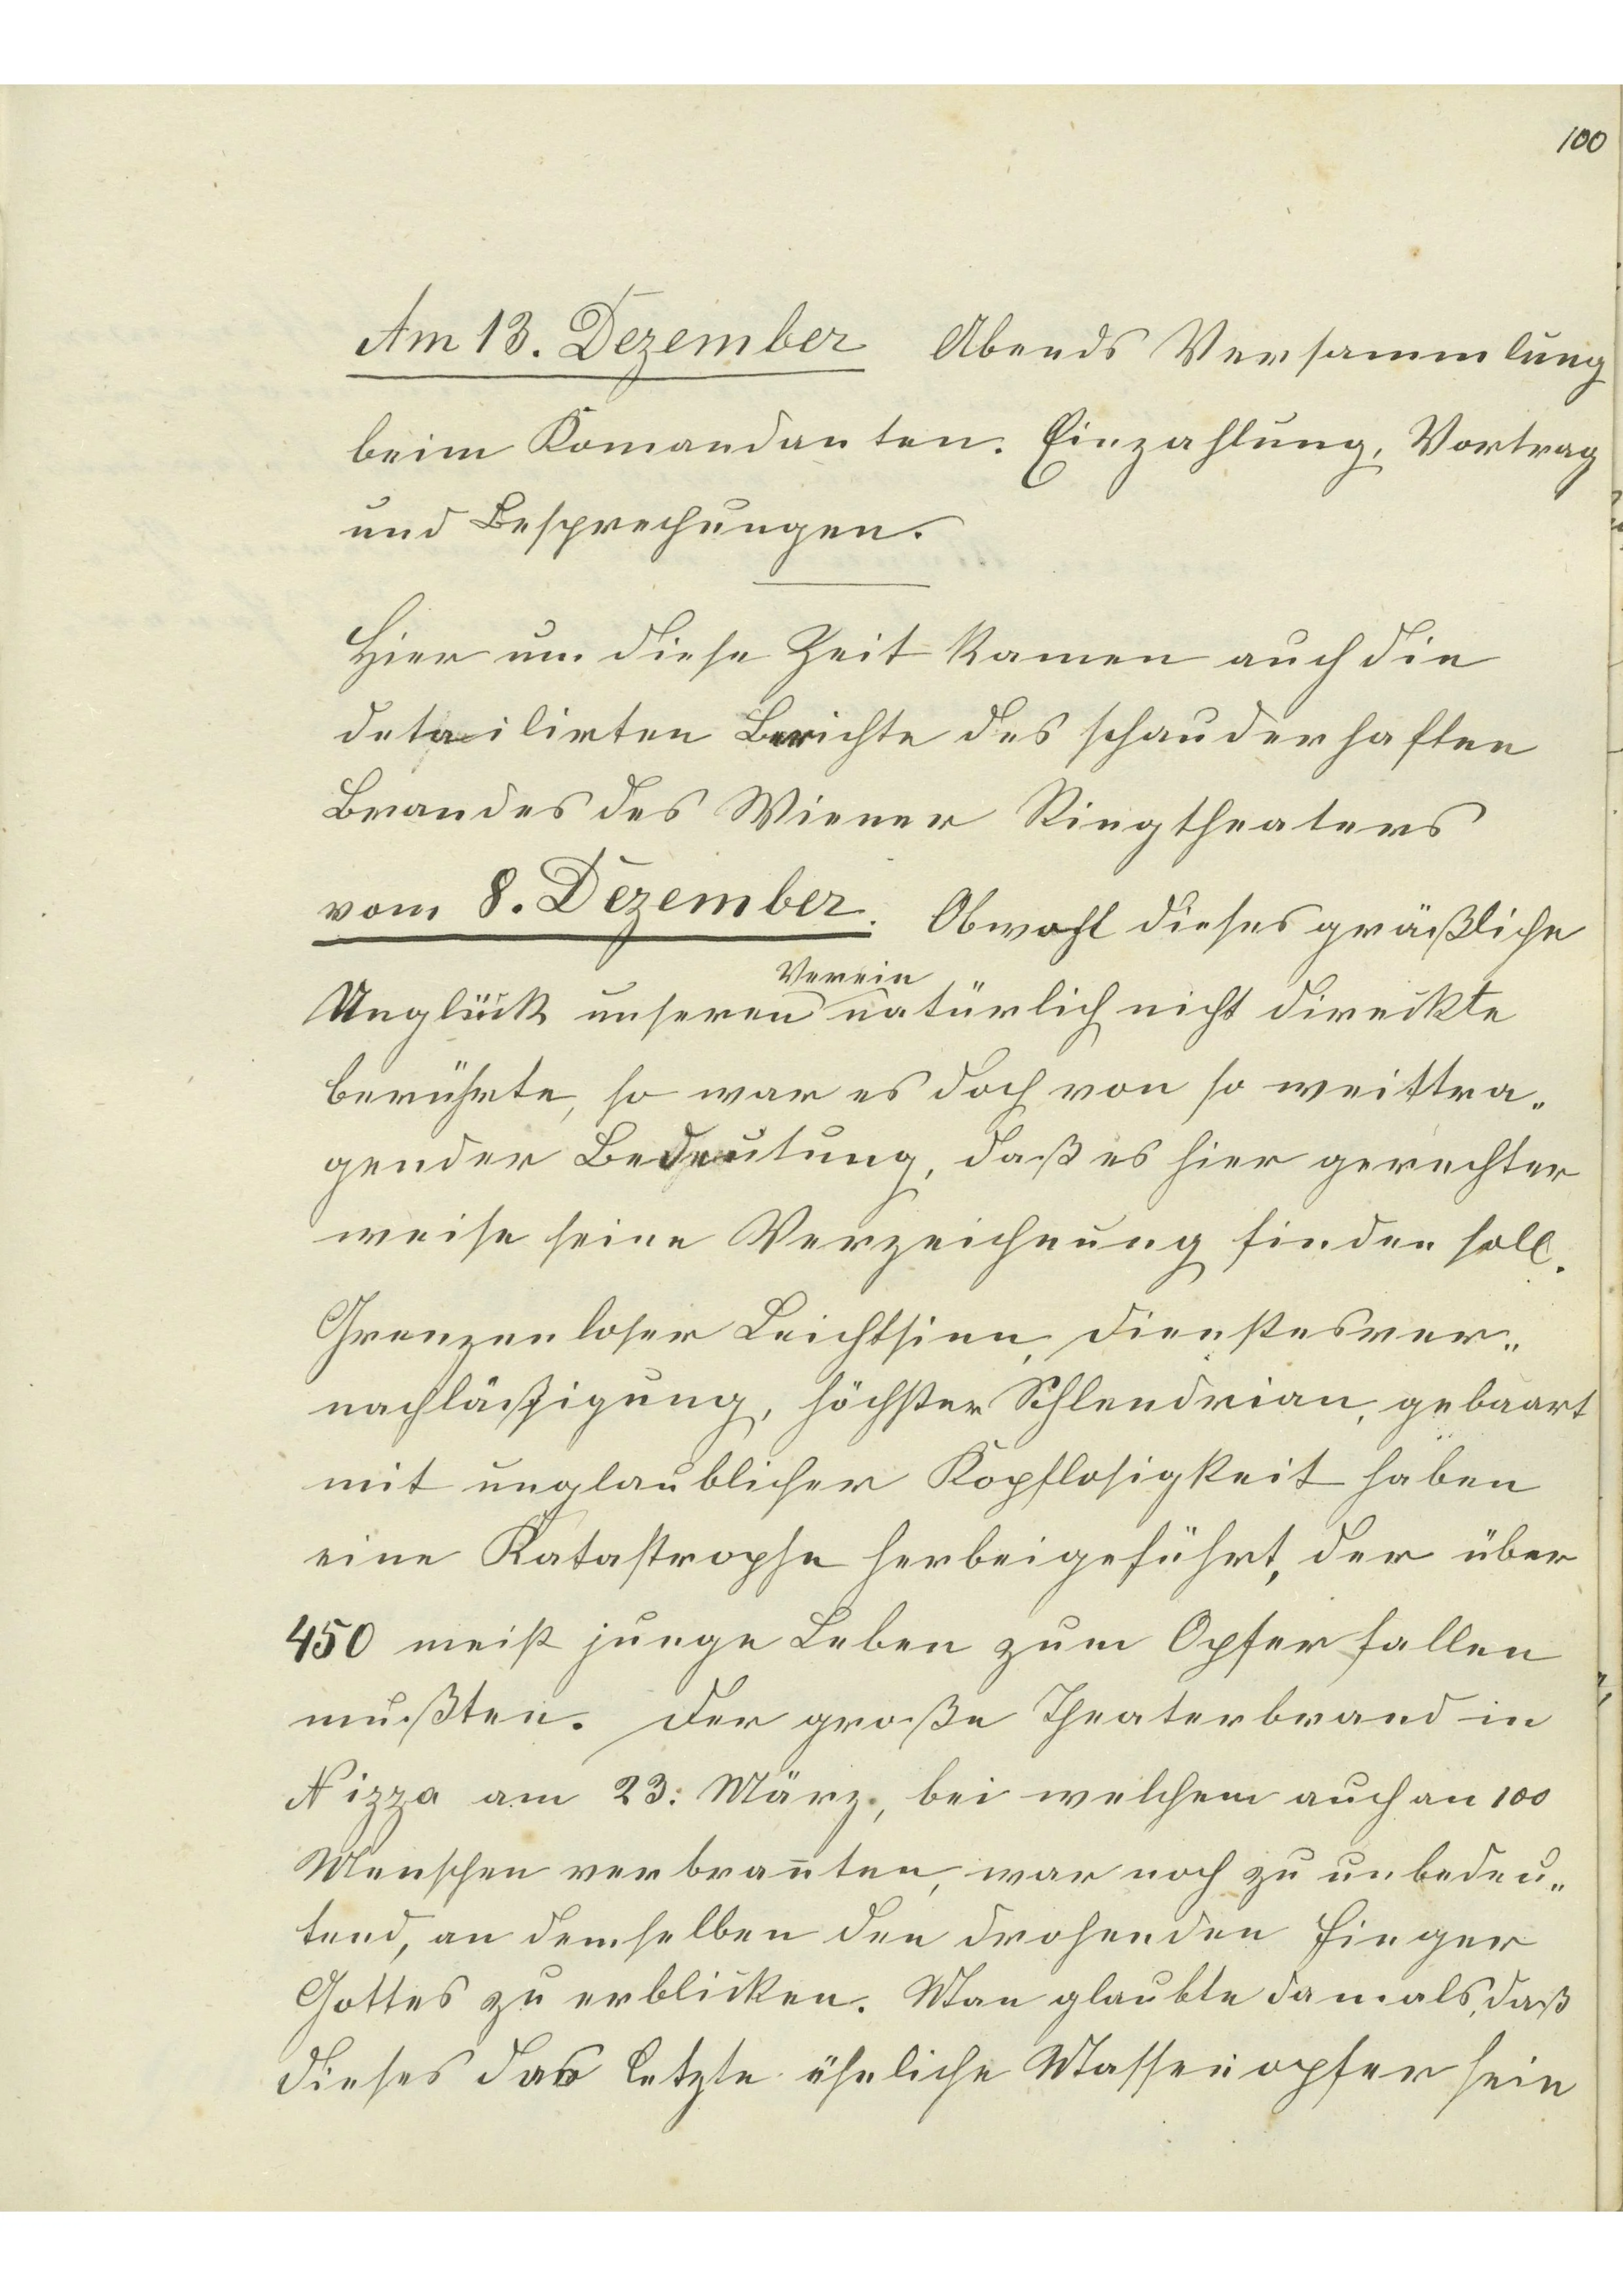 100
Am 13. Dezember Abends Versammlung
beim Komandanten. Einzahlung, Vortrag
und Besprechungen.
Hier um diese Zeit kamen auch die
detailirten Berichte des schauderhaften
Brandes des Wiener Ringtheaters
vom 8. Dezember. Obwohl dieses gräßliche
Verein
Unglück unseren natürlich nicht direckte
berührte, so war es doch von so weittra„
gender Bedeutung, daß es hier gerechter
weise seine Verzeichnung finden soll.
Grenzenloser Leichtsinn, Dienstesver„
nachläßigung, höchster Schlendrian, gebaart
mit unglaublicher Kopflosigkeit haben
eine Katastrophe herbeigeführt, der über
450 meist junge Leben zum Opfer fallen
mußten. Der große Theaterbrand in
Nizza am 23. März, bei welchem auch an 100
Menschen verbran̄ten, war noch zu unbedeu„
tend, an demselben den drohenden Finger
Gottes zu erblicken. Man glaubte damals, daß
dieses das letzte ähnliche Massenopfer sein